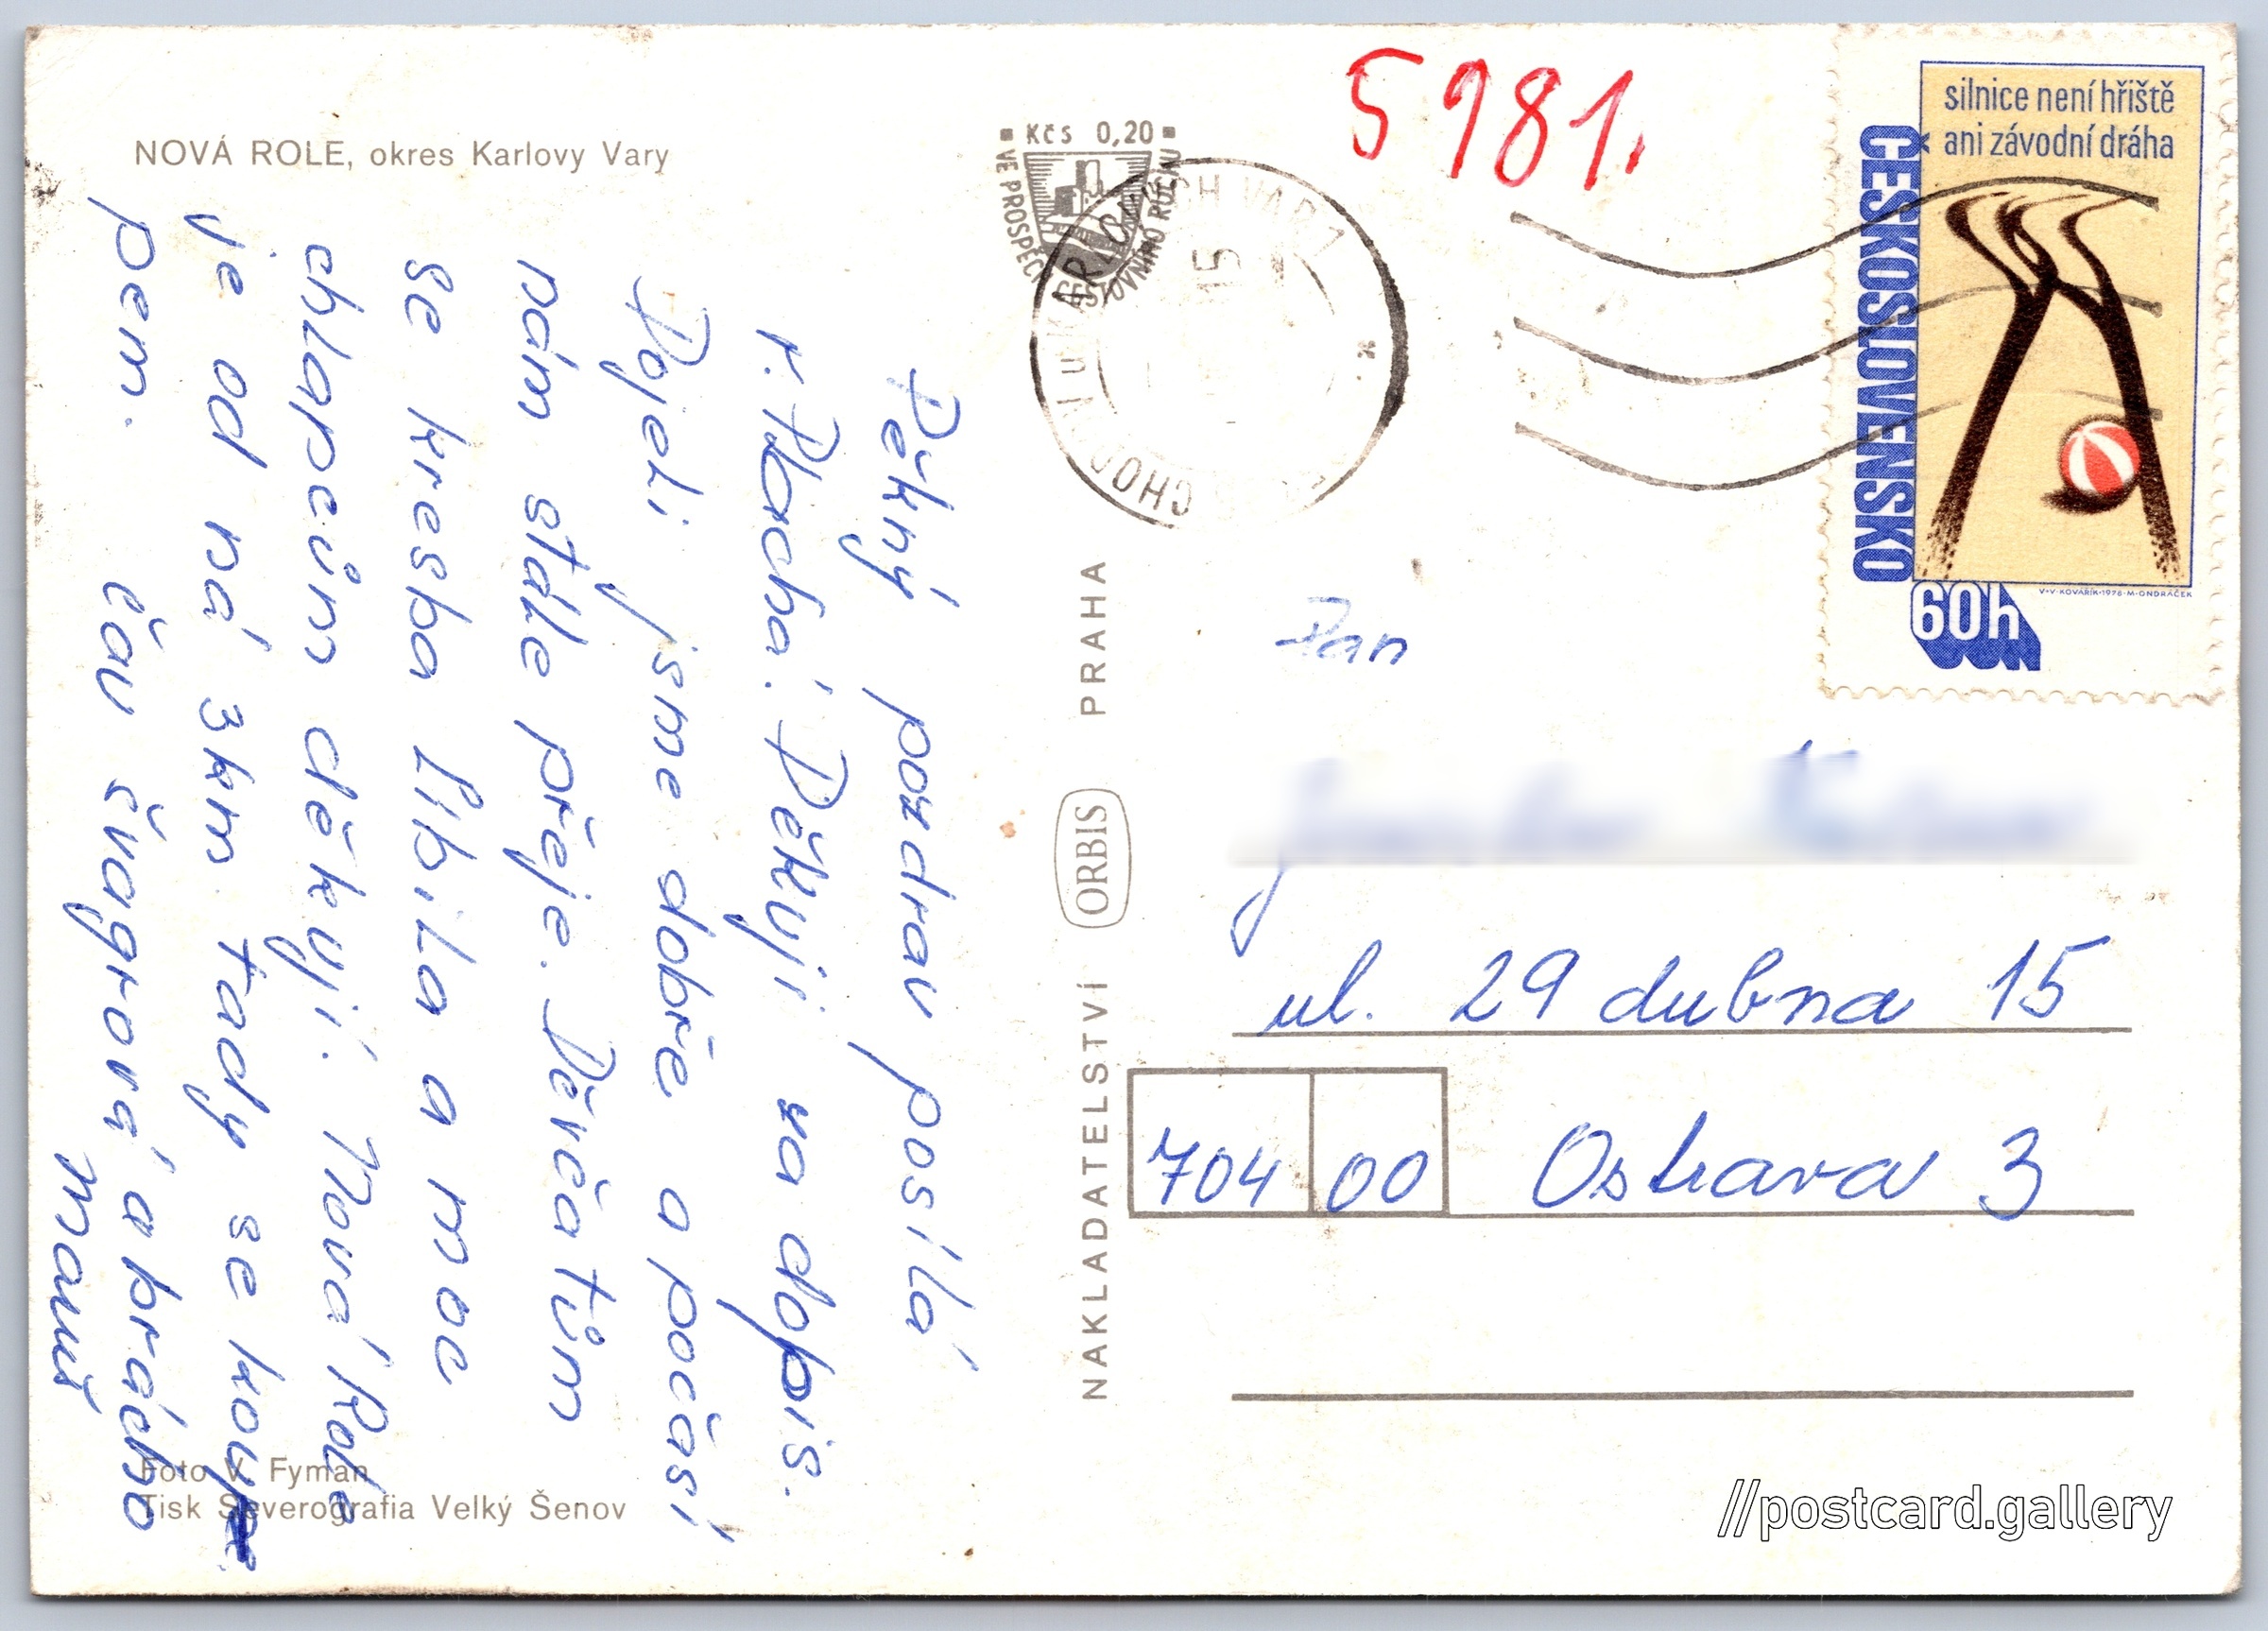 NOVÁ ROLE, okres Karlovy Vary
Pěkný pozdrav posílá
r. Plocha. Děkuji za dopis.
Dojeli jsme dobře a počasí
nám stále přeje. Děvčatům
se kresba líbila a moc
chlapcům děkují. Nová Role
je od ná 3km tady se koupe
pem.
čau švagrová a brácho
Foto V. Fyman
Tisk Severografia Velký Šenov
NAKLADATELSTVÍ ORBIS PRAHA
■ Kčs 0,20 ■
VE PROSPĚCH CESTOVNÍHO RUCHU
15
5981.
silnice není hřiště
ani závodní dráha
ČESKOSLOVENSKO
60h
V•V•KOVÁŘÍK•1978•M•ONDRÁČEK
Pan
ul. 29 dubna 15
704 00 Ostrava 3
//postcard.gallery